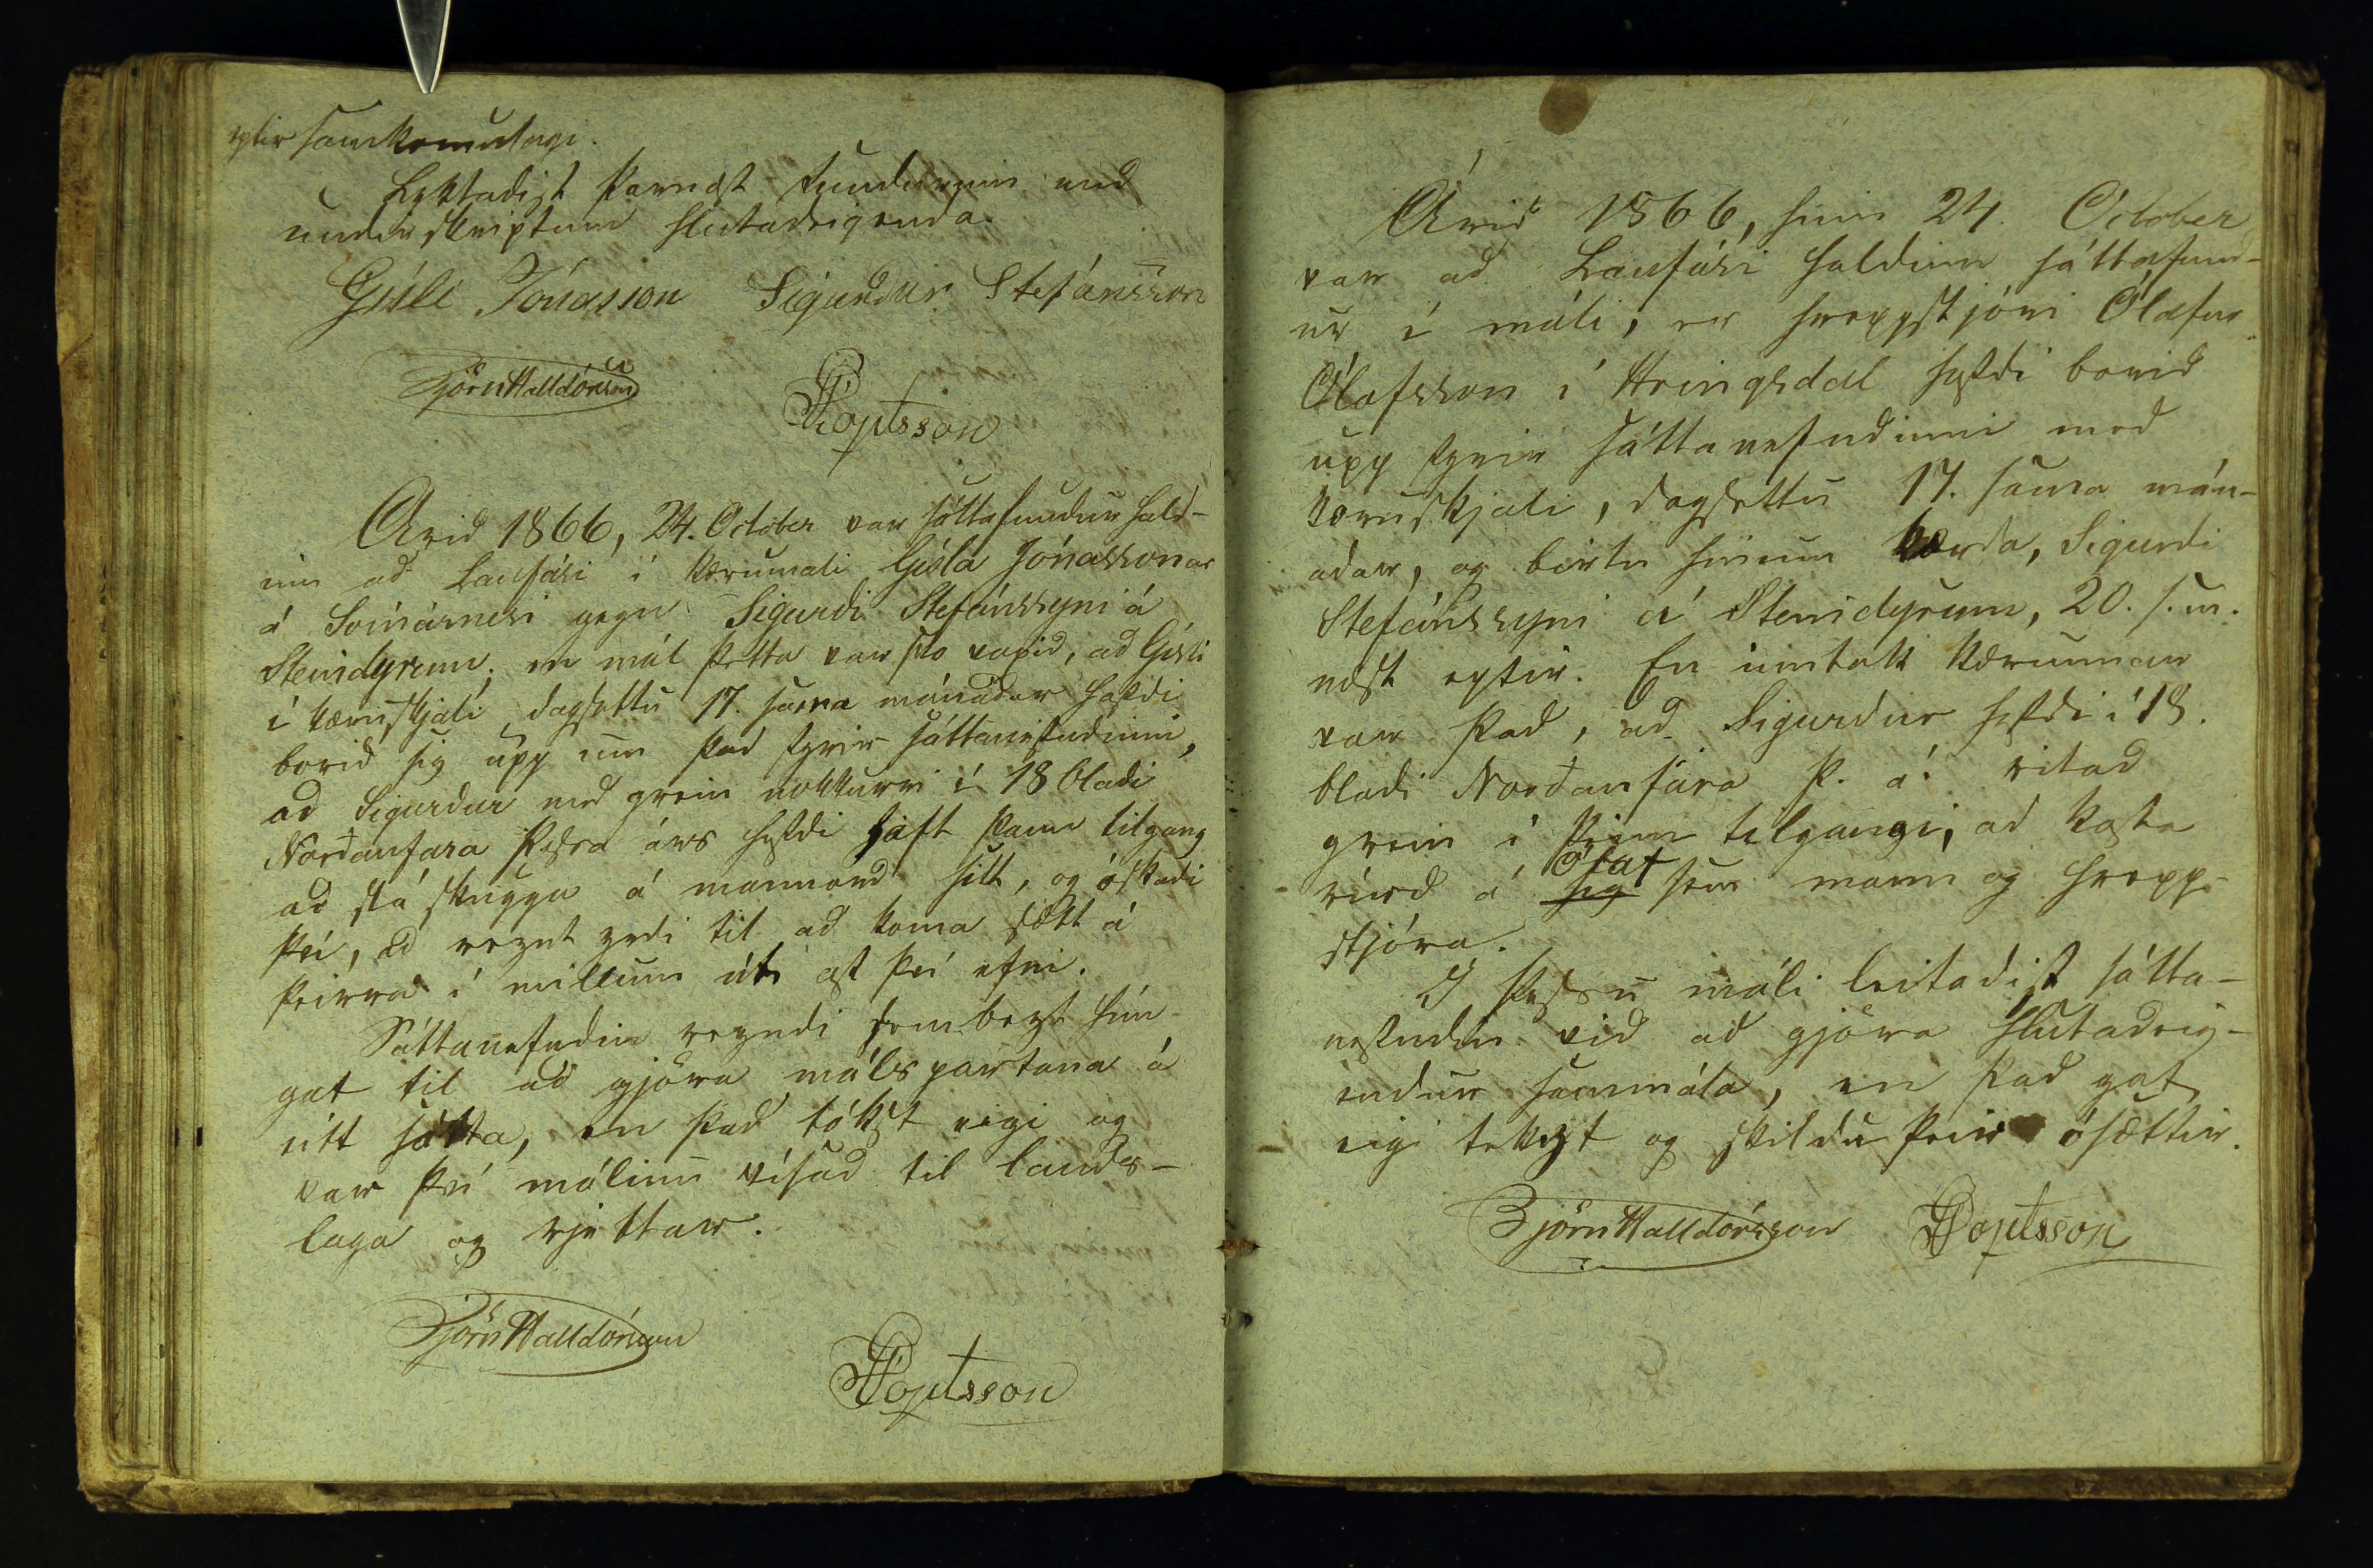 eptir samkomulagi.
Lyktadist þarnæst fundurinn med
undirskriptum hlutadeigenda.
Gísli Jónasson Sigurður Stefánsson
Björn Halldórsson
Loptsson
Árid 1866, 24. October var sáttafundur hald-
inn ad Laufási í kærumáli Gísla Jónassonar
á Svínárnesi gegn Sigurdi Stefánssyni á
Steindyrum; en mál þetta var svo vaxid, ad Gísli
í kæruskjali dagsettu 17. sama mánadar hafdi
borid sig upp um þad fyrir sáttanefndinni,
ad Sigurdur med grein nokkurri í 18 bladi
Nordanfara þessa árs hefdi haft þann tilgang
ad slá skugga á mannord sitt, og óskadi
því, ad reynt yrdi til ad koma sátt á
þeirra í millum út af því efni.
Sáttanefndin reyndi sem bezt hún
gat til ad gjöra málspartana á
eitt sátta, en þad tókst eigi og
var því málinu vísad til lands-
laga og rjettar.
Björn Halldórsson
Loptsson
Árid 1866, hinn 24. October
var ad Laufási haldinn sáttafund-
ur í máli, er hreppstjóri Ólafur
Ólafsson í Hringsdal hefdi borid
upp fyrir sáttanefndinni med
kæruskjali, dagsettu 17. sama mán-
adar, og birtu hinum kærda, Sigurdi
Stefánssyni á Steindyrum, 20. s. m.
næst eptir. En inntak kærunnar
var þad, ad Sigurdur hefdi í 18.
bladi Nordanfara þ. á. ritad
grein í þeim tilgangi, ad kasta
rírd á sig Ólaf sem mann og hrepp-
stjóra.
Í þessu máli leitadist sátta-
nefndin vid ad gjöra hlutadeig-
endur sammála, en þad gat
eigi tekizt og skildu þeir ósáttir.
Björn Halldórsson Loptsson